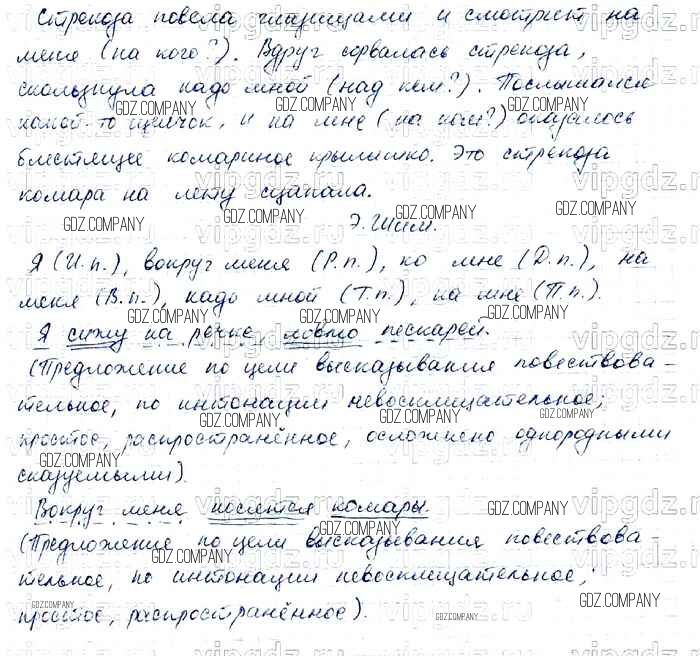 Стрекоза повела глазищами и смотрит на
меня (на кого?). Вдруг сорвалась стрекоза,
скользнула надо мной (над кем?). Послышался
какой-то щелчок, и на мне (на ком?) оказалось
блестящее комариное крылышко. Это стрекоза
комара на лету сцапала.
Э. Шим.
Я (И.п.), вокруг меня (Р.п.), ко мне (Д.п.), на
меня (В.п.), надо мной (Т.п.), на мне (П.п.).
Я сижу на речке, ловлю пескарей.
(Предложение по цели высказывания повествова-
тельное, по интонации невосклицательное;
простое, распространённое, осложнено однородными
сказуемыми).
Вокруг меня носятся комары.
(Предложение по цели высказывания повествова-
тельное, по интонации невосклицательное;
простое, распространённое).
GDZ.COMPANY
vipgdz.ru